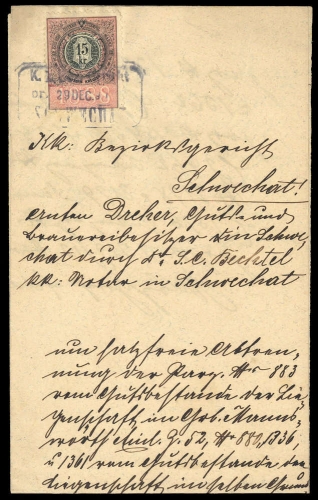 15
29 DEC.
Kk: Bezirksgericht
Schwechat!
Dreher, Guts- und
Brauereibesitzer in Schwe-
chat durch Dr. J. C. Bechtel
kk: Notar in Schwechat
um satzfreie Abtren-
nung der Parz. Nr 883
vom Gutsbestande der Lie-
genschaft in Gb. Manns-
wörth Einl. Z. 52, Nr 880/336,
u 1361 vom Gutsbestande der
Liegenschaft im selben Grund